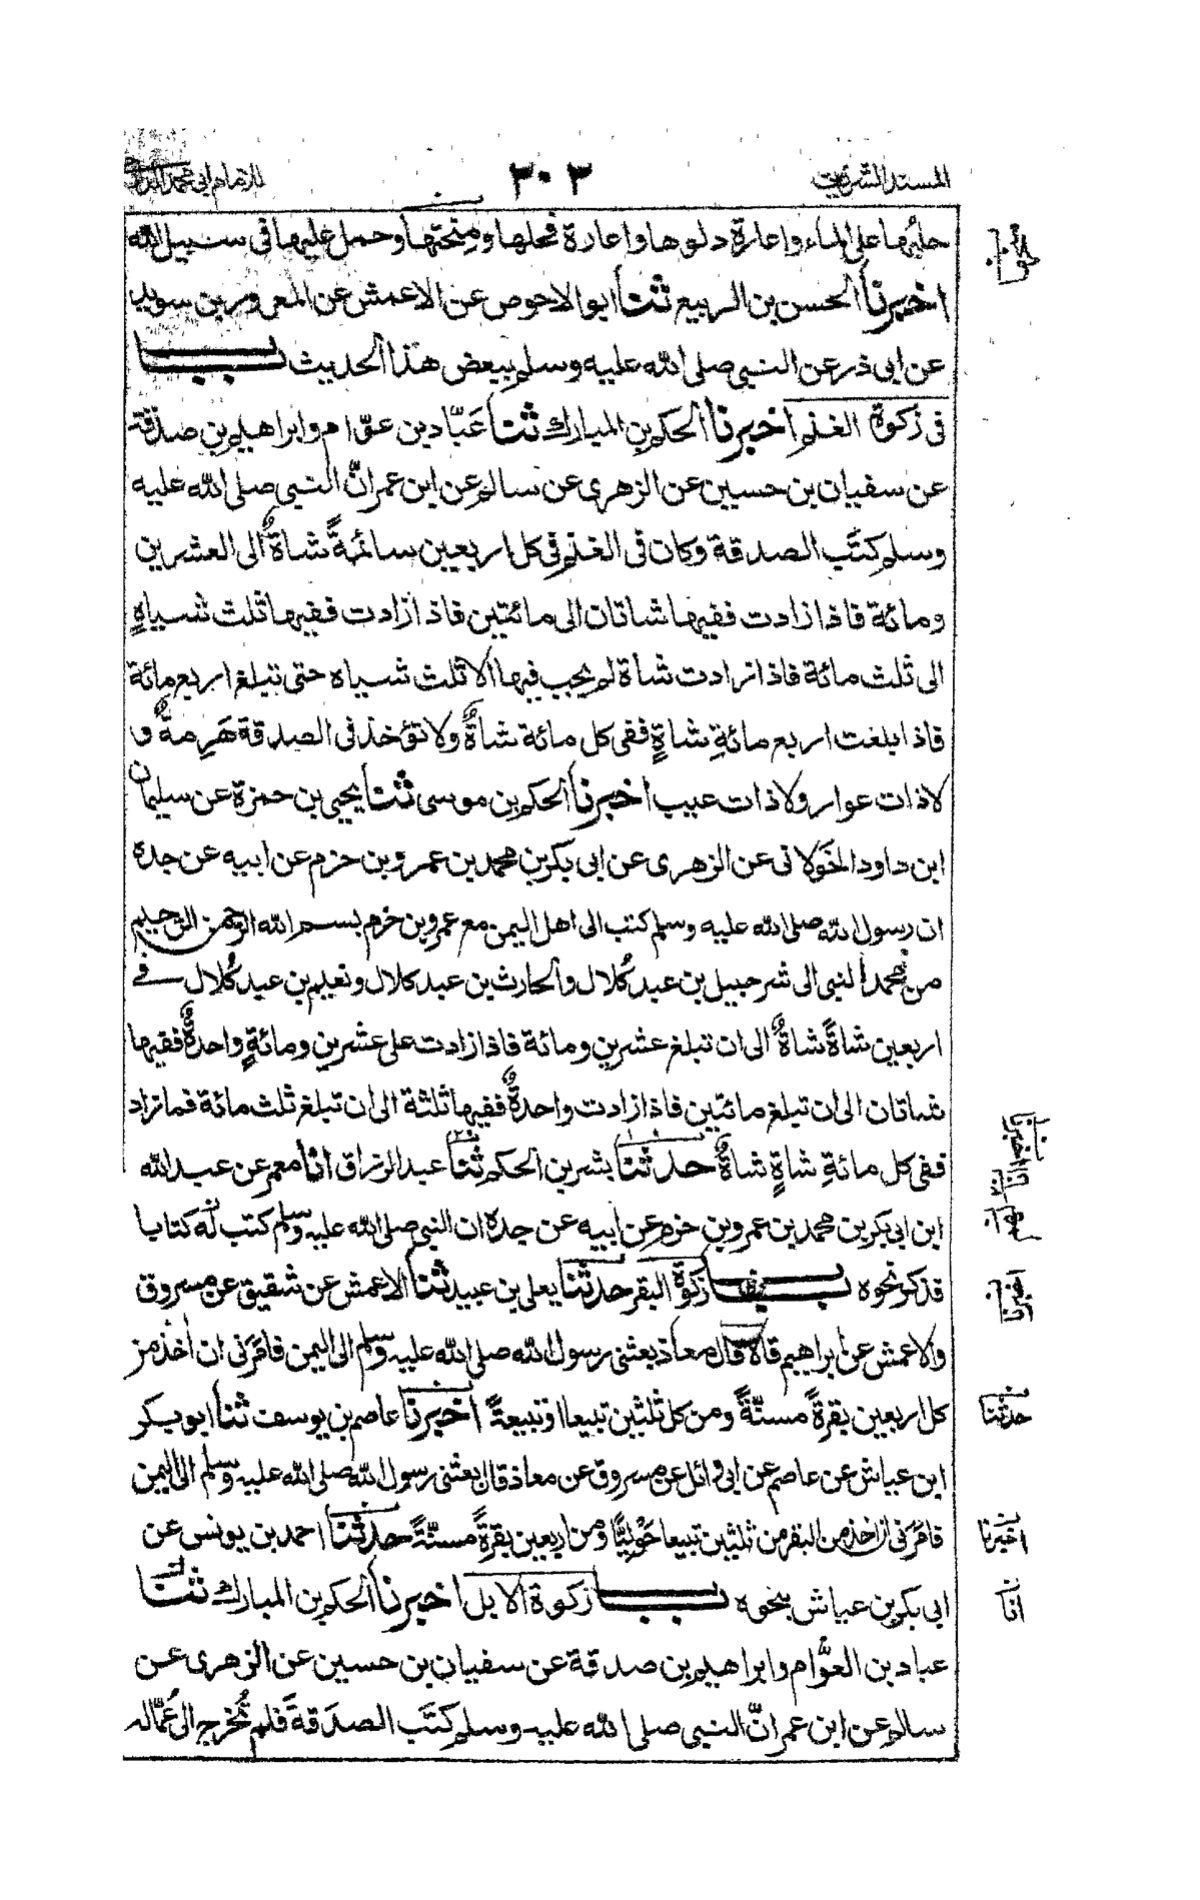 المسند الشريف
٣٠٣
للامام ابي محمد الدارمي
حلبُها على الماء واعارة دلوها واعارة فحلها ومنحتها وحمل عليها فى سبيل الله
اخبرنا الحسن بن الربيع ثنا ابوالاحوص عن الاعمش عن المعرور بن سويد
عن ابى ذر عن النبى صلى الله عليه وسلم ببعض هذا الحديث باب
فى زكوة الغنم اخبرنا الحكم بن المبارك ثنا عَبّاد بن عوّام وابراهيم بن صدقة
عن سفيان بن حسين عن الزهرى عن سالم عن ابن عمر انّ النبى صلى الله عليه
وسلم كتَب الصدقة وكان فى الغنم فى كل اربعين سائمةً شاةٌ الى العشرين
ومائة فاذا زادت ففيها شاتان الى مائتين فاذا زادت ففيها ثلث شياهٍ
الى ثلث مائة فاذا زادت شاة لم يجب فيها الا ثلث شياه حتى تبلغ اربع مائة
فاذا بلغت اربع مائةِ شاةٍ ففى كل مائة شاةٌ ولا تؤخذ فى الصدقة هَرِمةٌ و
لا ذات عوار ولا ذات عيب اخبرنا الحكم بن موسى ثنا يحيى بن حمزة عن سليمان
ابن داود الخَولانى عن الزهرى عن ابى بكر بن محمد بن عمرو بن حزم عن ابيه عن جده
ان رسول الله صلى الله عليه وسلم كتب الى اهل اليمن مع عمرو بن حزم بسم الله الرحمن الرحيم
من محمد النبى الى شرحبيل بن عبد كُلال والحارث بن عبد كلال ونعيم بن عبد كُلال فى
اربعين شاةً شاةٌ الى ان تبلغ عشرين ومائة فاذا زادت على عشرين ومائةٍ واحدةٌ ففيها
شاتان الى ان تبلغ مائتين فاذا زادت واحدةٌ ففيها ثلثة الى ان تبلغ ثلث مائة فما زاد
ففى كل مائةِ شاةٍ شاةٌ حدثنا بشر بن الحكم ثنا عبد الرزاق انا معمر عن عبد الله
ابن ابى بكر بن محمد بن عمرو بن حزم عن ابيه عن جده ان النبى صلى الله عليه وسلم كتب له كتابا
فذكر نحوه باب فى زكوة البقر حدثنا يعلى بن عبيد ثنا الاعمش عن شقيق عن مسروق
والاعمش عن ابراهيم قالا قال معاذ بعثنى رسول الله صلى الله عليه وسلم الى اليمن فامَرَنى ان اخذ من
كل اربعين بقرةً مسنّةً ومن كل ثلثين تبيعا او تبيعةً اخبرنا عاصم بن يوسف ثنا ابو بكر
ابن عياش عن عاصم عن ابى وائل عن مسروق عن معاذ قال بعثنى رسول الله صلى الله عليه وسلم الى اليمن
فامَرَنى ان اخذ من البقر من ثلثين تبيعا حَوْليًّا ومن اربعين بقرةً مسنّةً حدثنا احمد بن يونس عن
ابى بكر بن عياش بنحوه باب زكوة الابل اخبرنا الحكم بن المبارك ثنا
عباد بن العوّام وابراهيم بن صدقة عن سفيان بن حسين عن الزهرى عن
سالم عن ابن عمر انّ النبى صلى الله عليه وسلم كتَب الصدَقةَ فلم تُخرج الى عُمّاله
اخبرنا
انا
اخبرنا
حدثنا
اخبرنا
انا